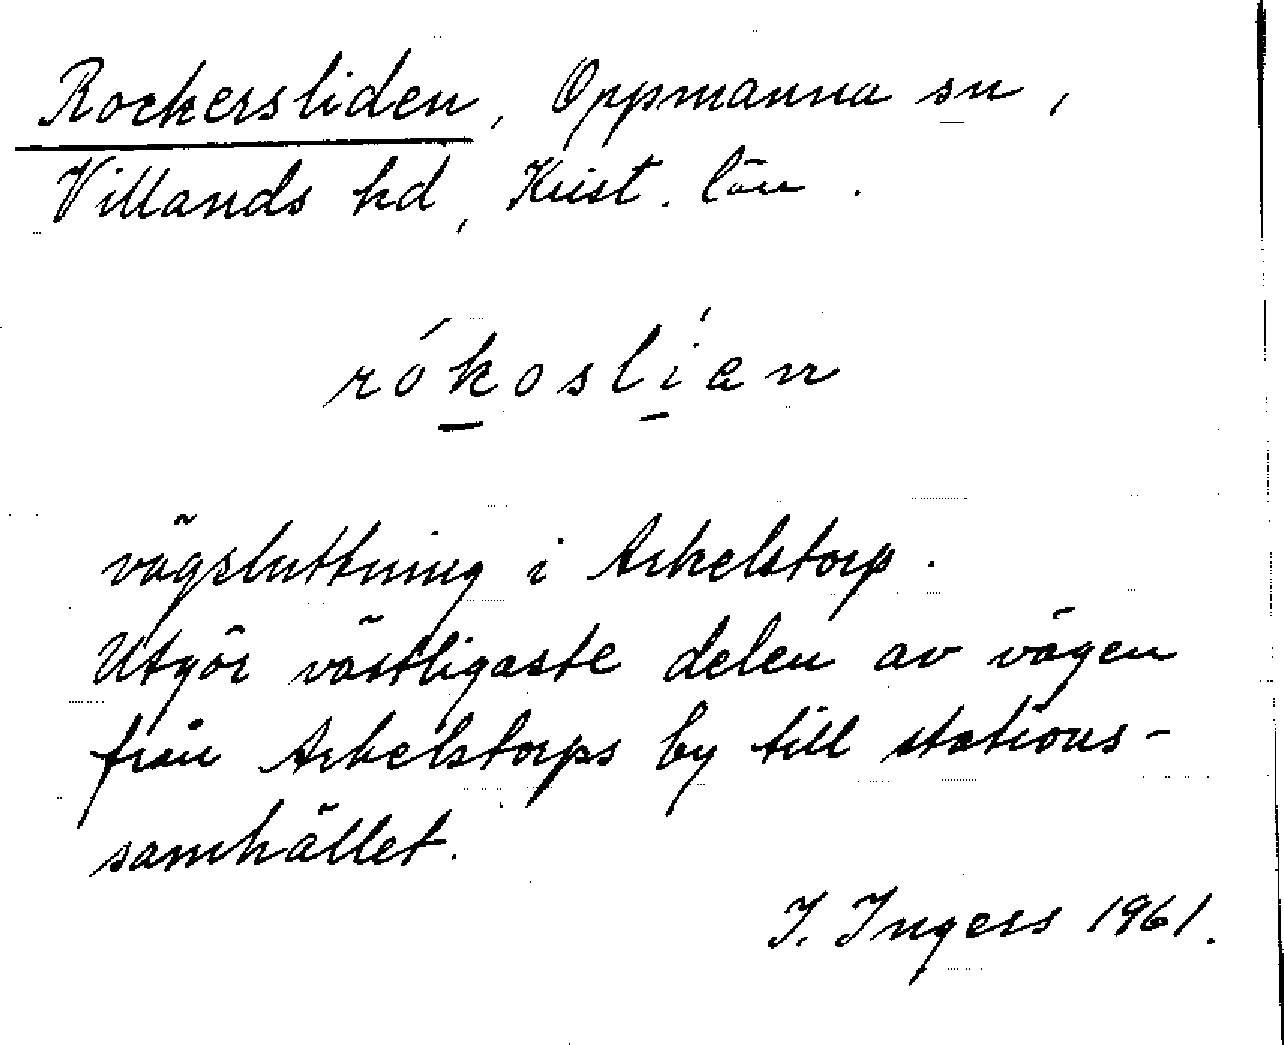 Rockersliden, Oppmanna sn,
Villands hd, Krist. län.
rókoslían
vägsluttning i Arkelstorp.
Utgör västligaste delen av vägen
från Arkelstorps by till stations-
samhället.
I. Ingers 1961.